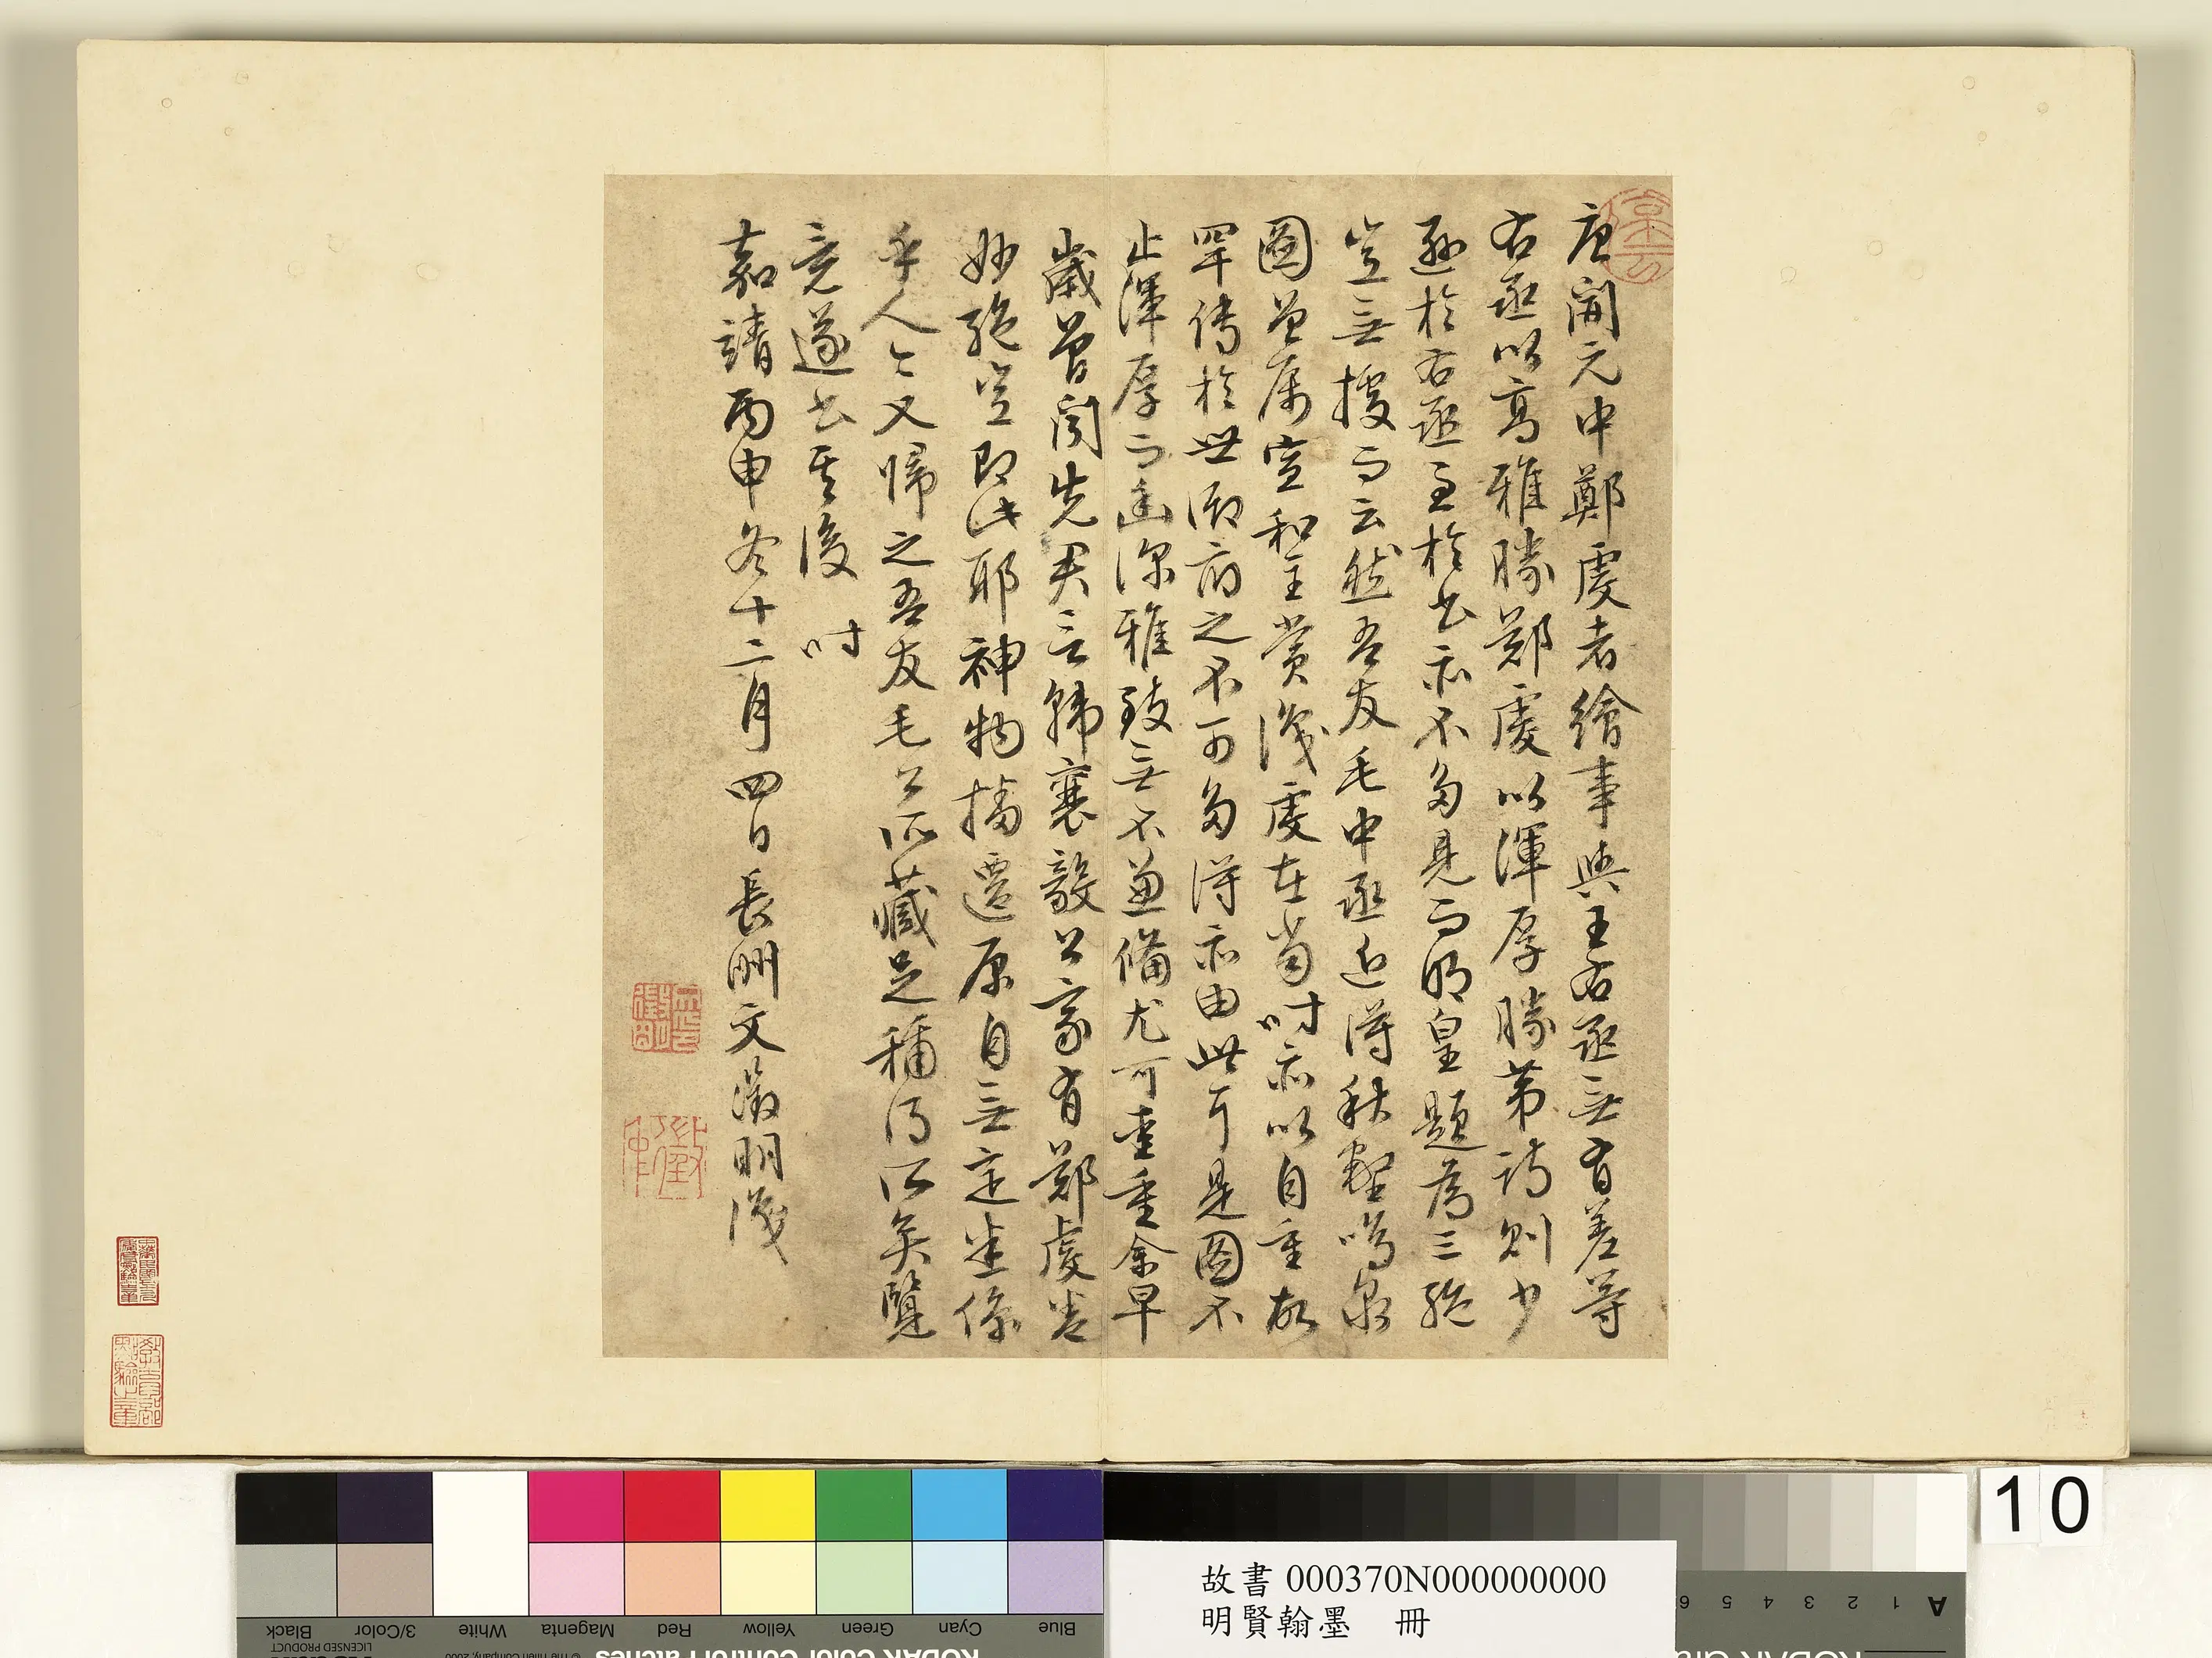 唐開元中鄭虔者繪事與王右丞無有差等
右丞以高雅勝鄭虔以渾厚勝第詩則少
遜於右丞至於書亦不多見而明皇題為三絕
豈無據而云然吾友毛中丞近得秋壑鳴泉
圖曾屬宣和主賞識虔在當時亦以自重故
罕傳於世內府之不可多得亦由此耳是圖不
止渾厚而幽深雅致無不兼備尤可重余早
歲曾聞先君言韓襄毅公家有鄭虔卷
妙絕豈即此耶神物播遷原自無定係
乎人今又歸之吾友毛公所藏足稱得所矣覽
竟遂書其後時
嘉靖丙申冬十二月四日長洲文徵明識
徵仲
10
故書 000370N000000000
明賢翰墨 冊
Blue Cyan Green Yellow Red Magenta White 3/Color Black
A 1 2 3 4 5 6